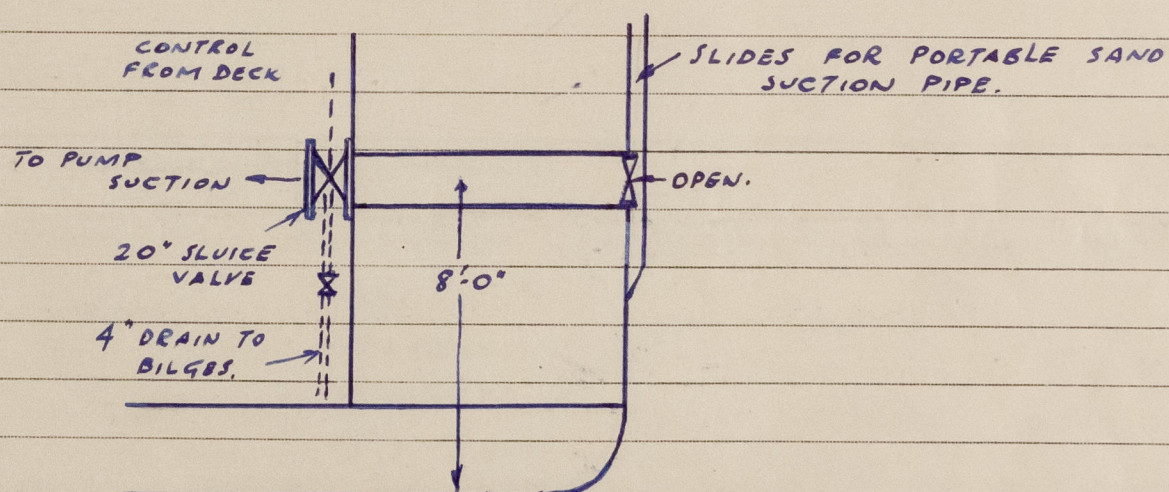 CONTROL
FROM DECK
SLIDES FOR PORTABLE SAND
SUCTION PIPE.
TO PUMP
SUCTION
OPEN.
20" SLUICE
VALVE
8'-0"
4" DRAIN TO
BILGES.